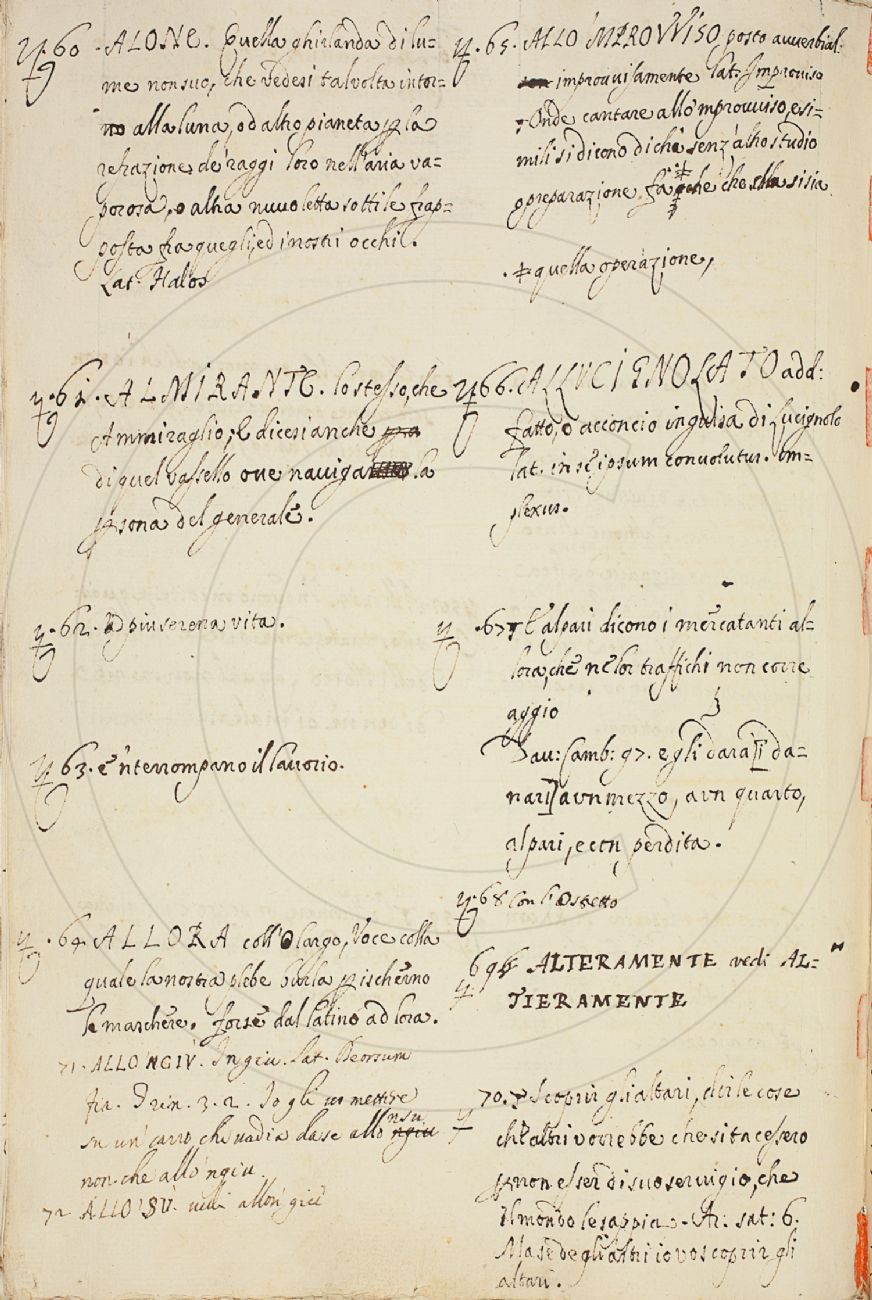 60. ALONE. Quella ghirlanda di lu=
me non suo, che vedesi talvolta intor=
no alla luna, o d'altro pianeta p la
refrazione de' raggi loro nell'aria va=
porosa, o altra nuvoletta sottile frap=
posta fra quegli, ed i nostri occhi.
Lat. Halos
61. ALMIRANTE. lo stesso, che
Ammiraglio; E dicesi anche
di quel vassello ove naviga la
psona del generale.
62. E piu serena vita.
63. e 'nterrompano il lavorio.
64. ALLORA coll'O largo, Voce colla
quale la nostra plebe burla p ischerno
le maschere. forse dal latino ad lora.
71. ALLO 'NGIÙ. In giu. Lat. Deorsum
fir. Trin. 3. 2. Io gli metterre
su un carro, che vadia da se allo 'nsu
non che allo 'ngiu
72 ALLO 'SÙ. vedi allo 'n giù
65. ALLO 'MPROVVISO posto avverbial.
improvvisamente lat. Improviso
Onde cantare allo 'mprovviso, e si=
mili si dicono di chi senz'altro studio
o preparazione fa che che si sia
quella operazione,
66. ALLUCIGNOLATO add:
fatto, o acconcio in guisa di Lucignolo
lat. in se ipsum convolutus. im=
plexus.
67 E al pari dicono i mercatanti al=
lora, che ne lor traffichi non corre
aggio
Dav: Camb: 97. egli darà i da=
nari a un mezzo, a un quarto,
al pari, e con perdita.
68 con l'O stretto
69 ALTERAMENTE vedi AL=
TIERAMENTE
70. Scoprir gli altari, dir le cose
ch'altri vorrebbe che si tacessero
p non esser di suo servigio, che
il mondo le sappia. Ar: sat: 6.
Ma se degli altri io vo scoprir gli
altari.